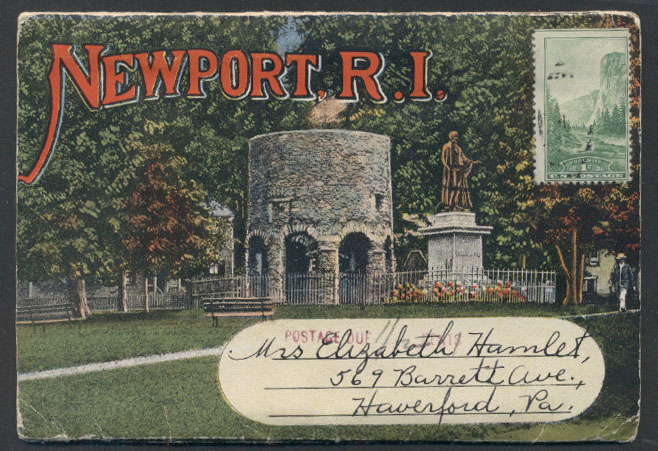 NEWPORT, R.I.
YOSEMITE
1¢
U.S. POSTAGE
POSTAGE DUE
Mrs Elizabeth Hamlet,
569 Barrett Ave.,
Haverford, Pa.